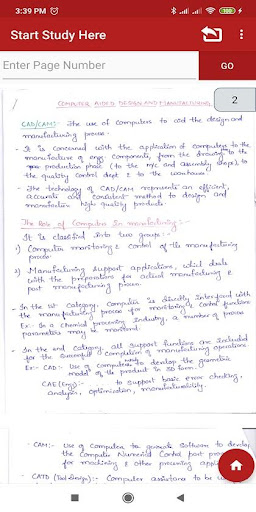 3:39 PM
Start Study Here
Enter Page Number
GO
2
COMPUTER AIDED DESIGN AND MANUFACTURING
CAD/CAM:- The use of computers to aid the design and
manufacturing process.
- It is concerned with the application of computers to the
manufacture of engg. components, from the drawing to the
production phase (to the m/c and assembly shops), to
the quality control dept & to the warehouse
- The technology of CAD/CAM represents an efficient,
accurate and consistent method to design and
manufacture high quality products.
The Role of Computer in manufacturing:-
It is classified into two groups:-
1) Computer monitoring & control of the manufacturing
process.
2) Manufacturing support applications, which deals
with the preparations for actual manufacturing &
post manufacturing process.
- In the 1st category, Computer is directly interfaced with
the manufacturing process for monitoring & control functions
Ex:- In a chemical processing industry, a number of process
parameters may be monitored.
- In the 2nd category, all support functions are included
for the successful completion of manufacturing operations.
Ex:- CAD:- Use of computers to develop the geometric
model of the product in 3D form.
CAE (Eng):- to support basic error checking,
analysis, optimization, manufacturability.
- CAM:- Use of Computer to generate Software to develop
the Computer Numerical Control part
for machining & other processing
- CATD (Tool Design):- Computer assistance to be